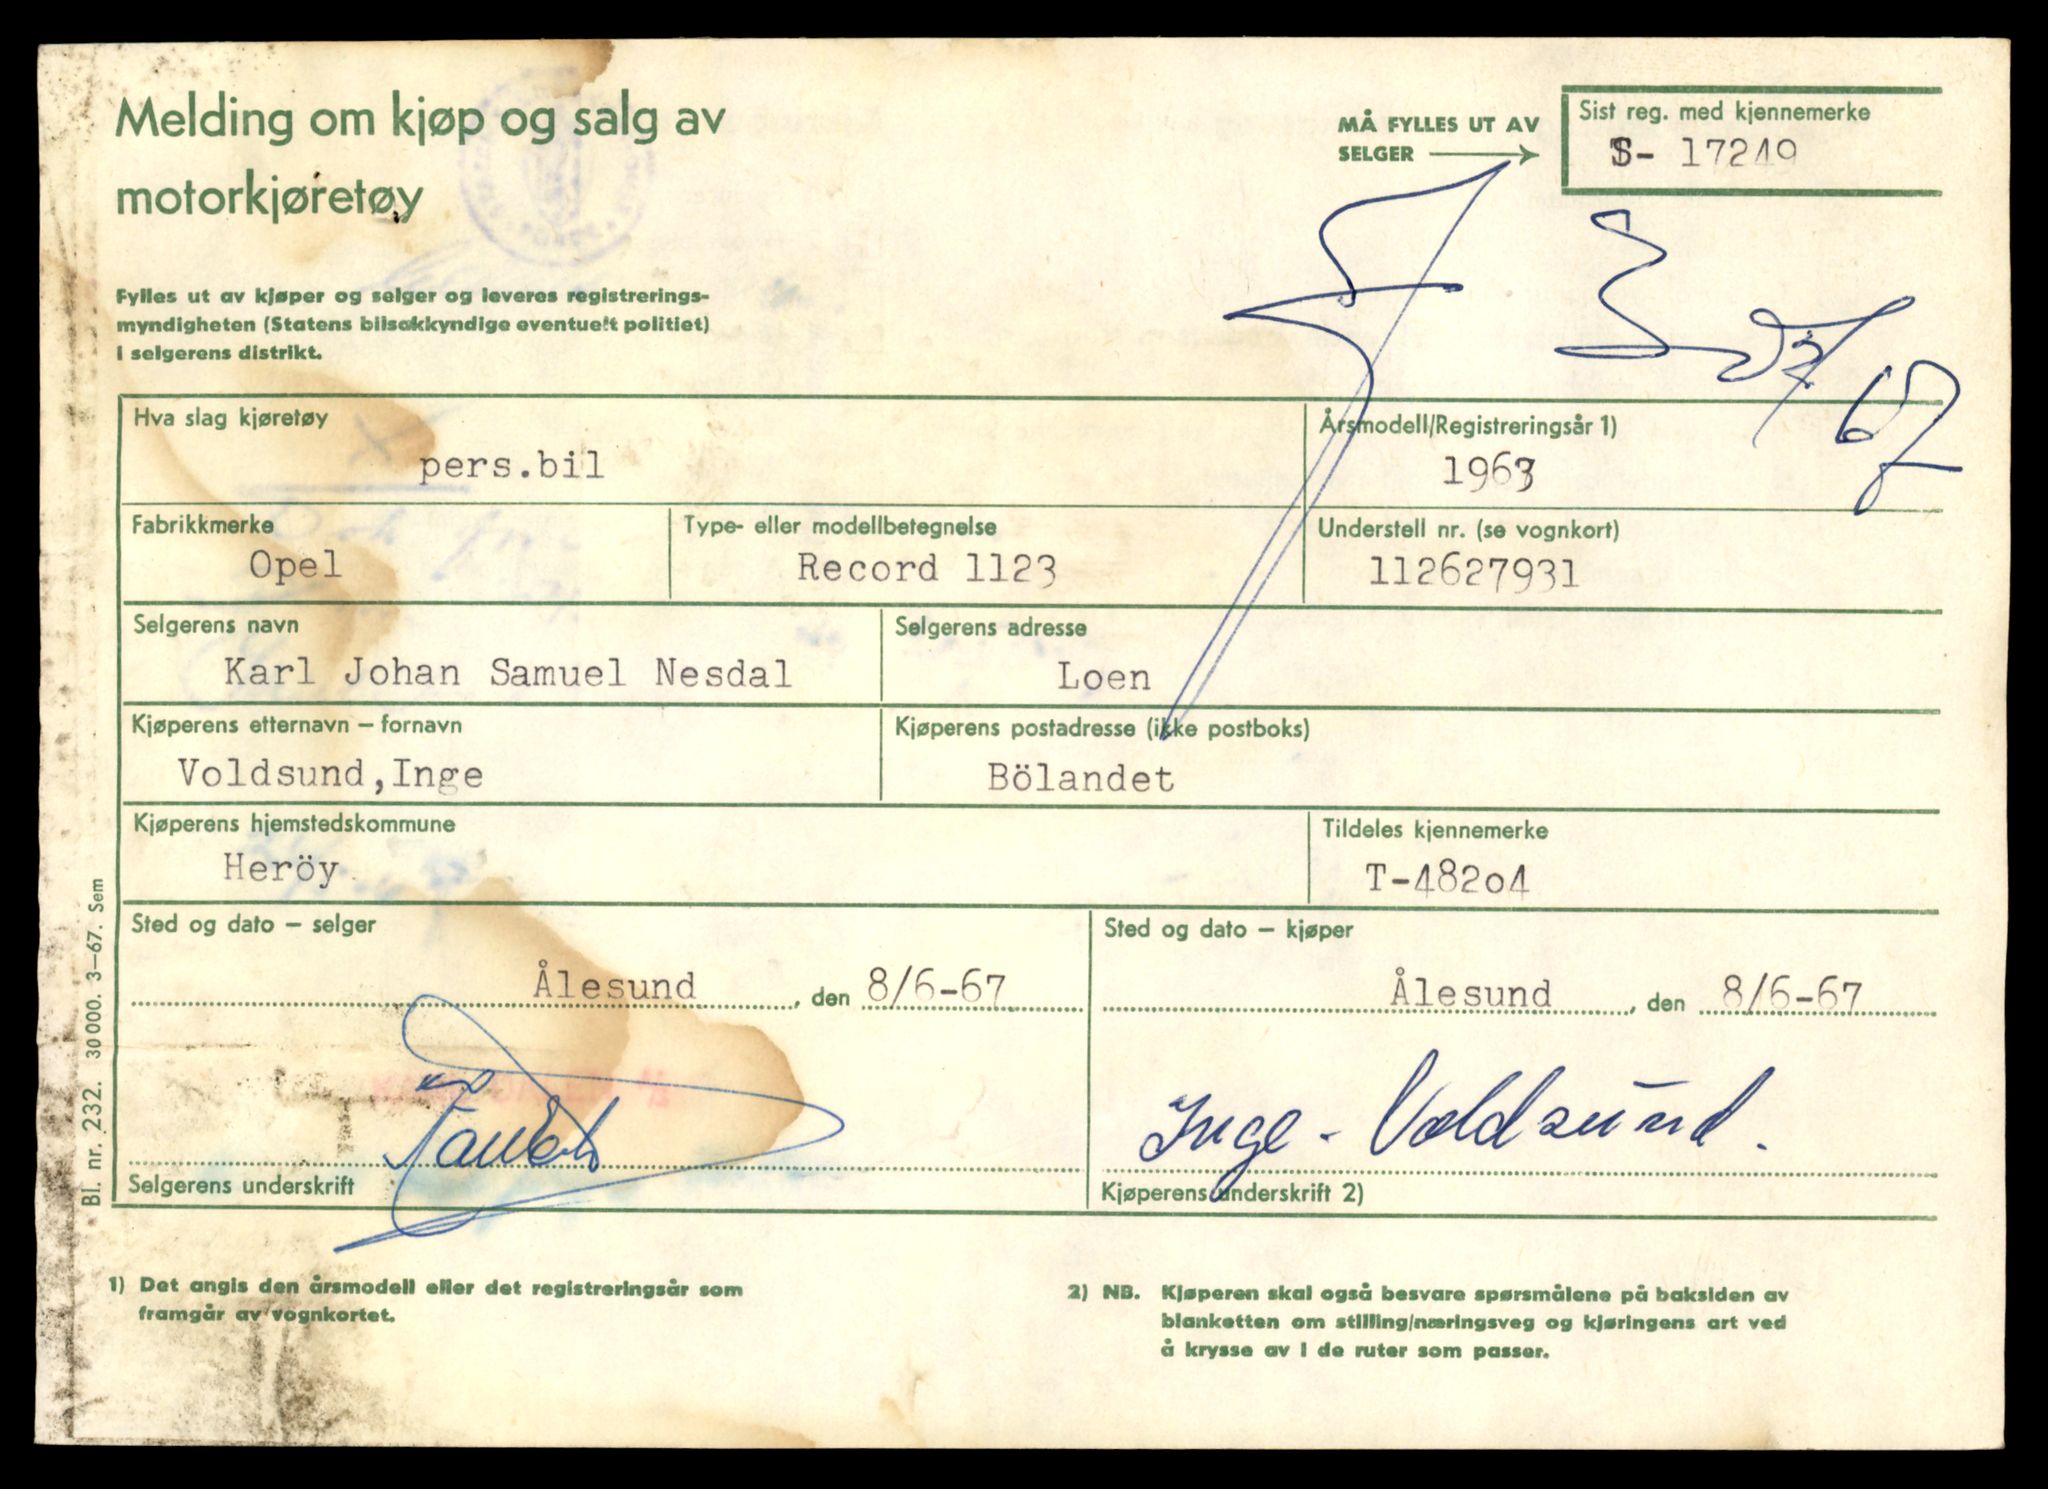 Melding om kjøp og salg av
motorkjøretøy
MÅ FYLLES UT AV
SELGER
Sist reg. med kjennemerke
S- 17249
Fylles ut av kjøper og selger og leveres registrerings-
myndigheten (Statens bilsakkyndige eventuelt politiet)
i selgerens distrikt.
Hva slag kjøretøy
pers.bil
Årsmodell/Registreringsår 1)
1963
Fabrikkmerke
Opel
Type- eller modellbetegnelse
Record 1123
Understell nr. (se vognkort)
112627931
Selgerens navn
Karl Johan Samuel Nesdal
Selgerens adresse
Loen
Kjøperens etternavn – fornavn
Voldsund,Inge
Kjøperens postadresse (ikke postboks)
Bölandet
Kjøperens hjemstedskommune
Heröy
Tildeles kjennemerke
T-48204
Sted og dato – selger
Ålesund, den 8/6-67
Sted og dato – kjøper
Ålesund, den 8/6-67
Inge - Voldsund.
Selgerens underskrift
Kjøperens underskrift 2)
Bl. nr. 232. 30000. 3–67. Sem
1) Det angis den årsmodell eller det registreringsår som
framgår av vognkortet.
2) NB. Kjøperen skal også besvare spørsmålene på baksiden av
blanketten om stilling/næringsveg og kjøringens art ved
å krysse av i de ruter som passer.